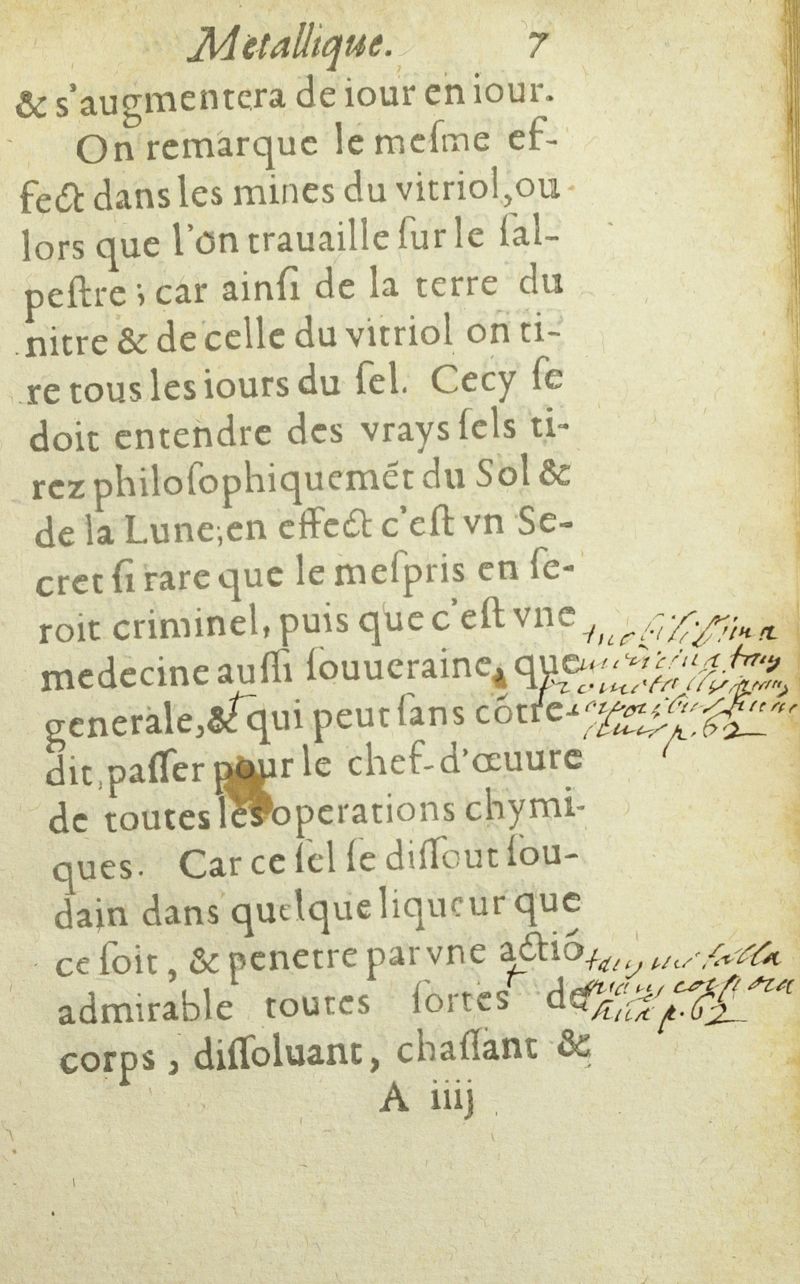 Metallique. 7
& s'augmentera de iour en iour.
On remarque le meſme ef-
fect dans les mines du vitriol, ou
lors que l'on trauaille ſur le ſal-
peſtre ; car ainſi de la terre du
nitre & de celle du vitriol on ti-
re tous les iours du ſel. Cecy ſe
doit entendre des vrays ſels ti-
rez philoſophiquemẽt du Sol &
de la Lune; en effect c'eſt vn Se-
cret ſi rare que le meſpris en ſe-
roit criminel, puis que c'eſt vne
medecine auſſi ſouueraine, que
generale, & qui peut ſans cõtre-
dit, paſſer pour le chef-d'œuure
de toutes les operations chymi-
ques. Car ce ſel ſe diſſout ſou-
dain dans quelque liqueur que
ce ſoit, & penetre par vne actiõ
admirable toutes ſortes de
p. 62
corps, diſſoluant, chaſſant &
A iiij